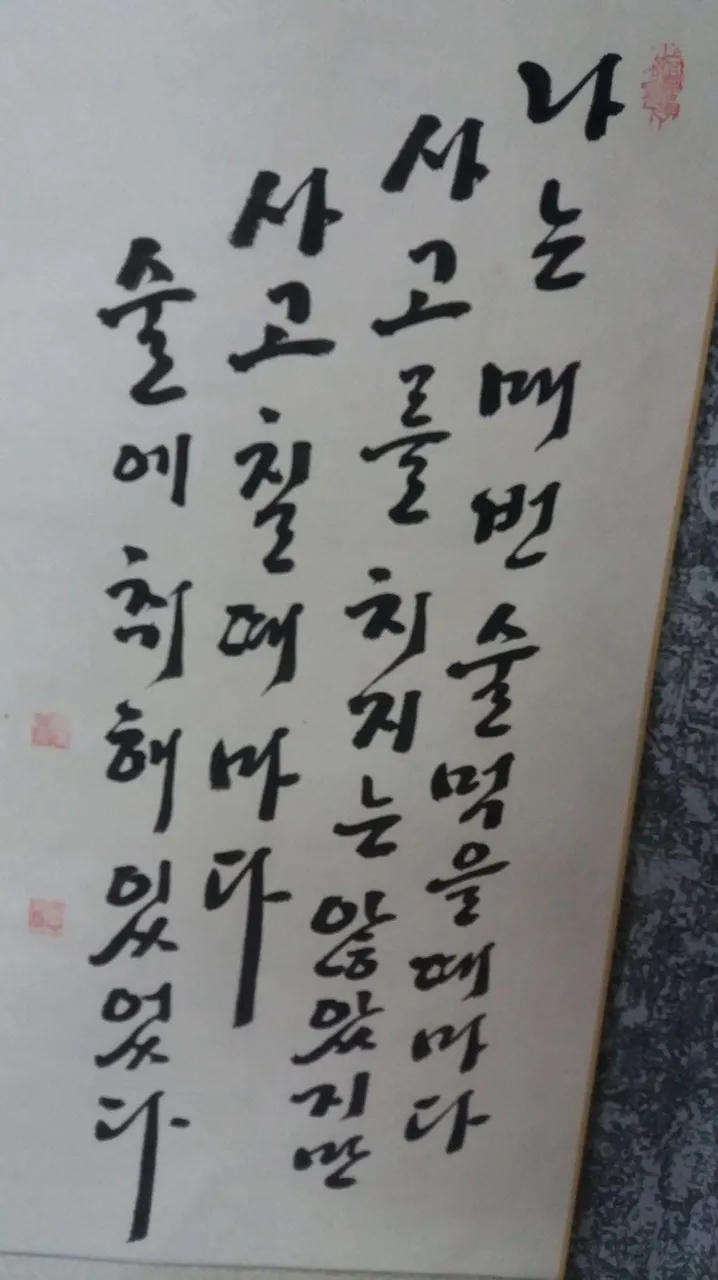 나는 매번 술먹을때마다
사고를 치지는 않았지만
사고칠때마다
술에 취해있었다